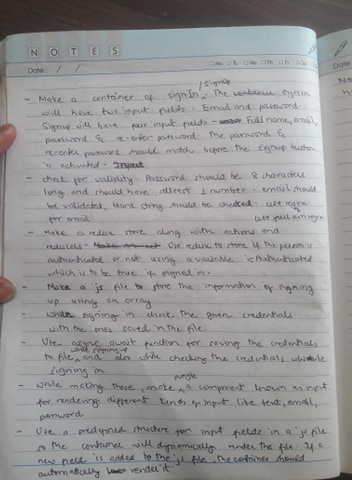 NOTES
Date: / /
/ signup
- Make a container of signIn. The container signin
will have two input fields: Email and password
Signup will have four input fields - Full name, email,
password & re-enter password. The password &
re-enter password should match before the signup button
is activated -
- check for validity. Password should be 8 characters
long and should have atleast 1 number. email should
be validated, blank string should be checked - use regex
for email
- Make a redux store along with actions and
reducers - Use redux to store if the person is
authenticated or not using a variable isAuthenticated
which is to be true if signed in.
- Make a js file to store the information of signing
up using an array
- while signing in check the given credentials
with the ones saved in the file
- Use async await function for saving the credentials
while signing up
to file, and also while checking the credentials while
signing in
single
- While making these, make a component known as input
for rendering different kinds of input like text, email,
password
- Use a predefined structure for input fields in a js file
so the container will dynamically render the file. If a
new field is added to the js file, the container should
automatically render it